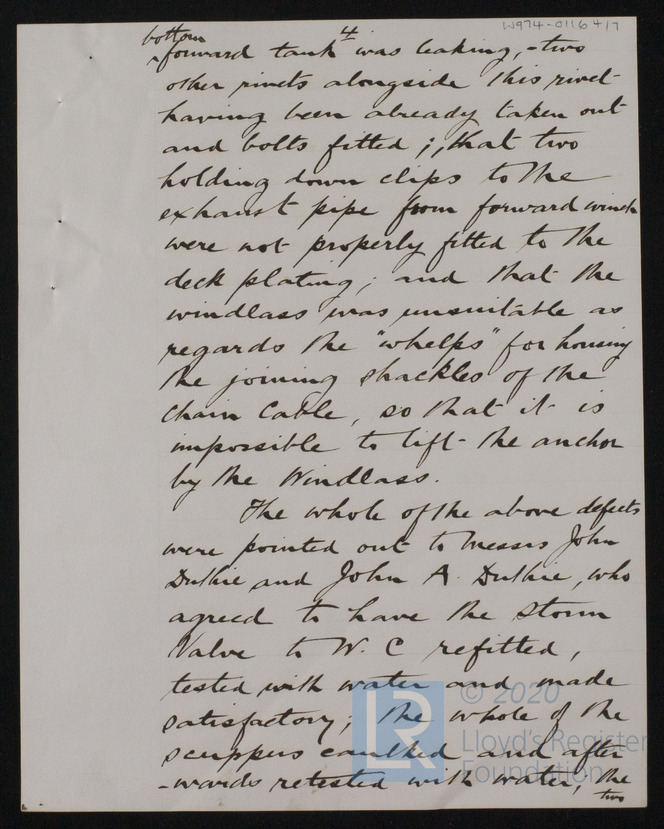 W974-0116 4/7
4
bottom
forward tank was leaking, - two
other rivets alongside this rivet
having been already taken out
and bolts fitted ; that two
holding down clips to the
exhaust pipe from forward winch
were not properly fitted to the
deck plating ; and that the
windlass was unsuitable as
regards the "whelps" for housing
the joining shackles of the
chain cable, so that it is
impossible to lift the anchor
by the Windlass.
The whole of the above defects
were pointed out to Messrs John
Duthie and John A. Duthie, who
agreed to have the storm
Valve to W. C refitted,
tested with water and made
satisfactory ; the whole of the
scuppers caulked and after
-wards retested with water, the
two
LR
© 2020
Lloyd's Register
Foundation